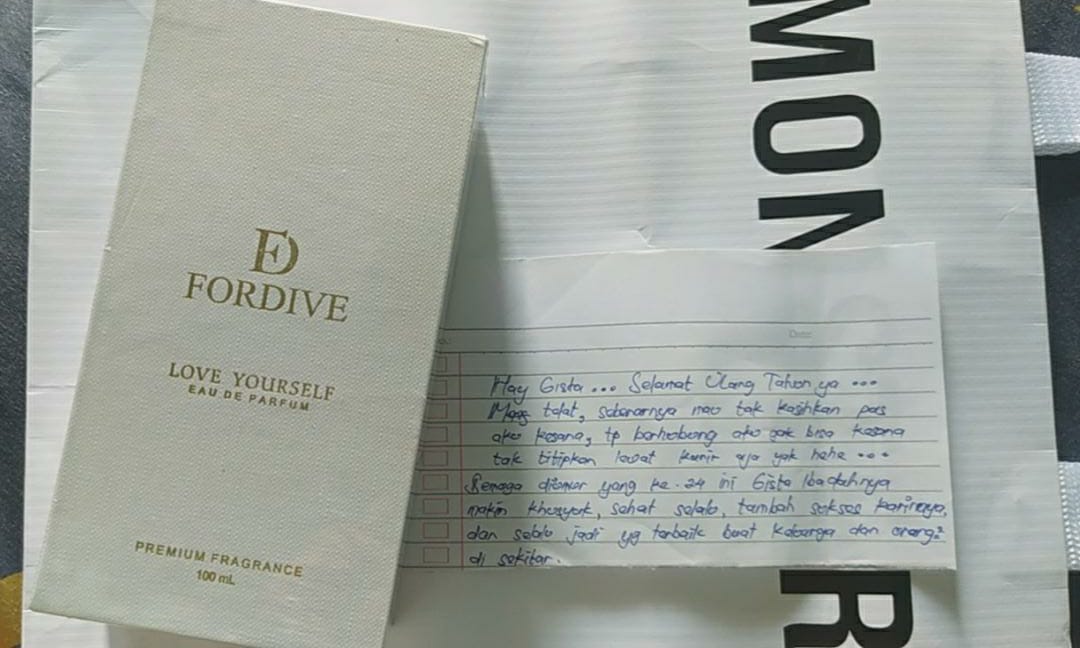 FD
FORDIVE
LOVE YOURSELF
EAU DE PARFUM
PREMIUM FRAGRANCE
100 mL
MON
R
Date:
Hay Gista... Selamat Ulang Tahun ya...
telat, sebenarnya mau tak kasihkan pas
aku kesana, tp berhubung aku gak bisa kesana
tak titipkan lewat kurir aja yak hehe...
Semoga diumur yang ke-24 ini Gista Ibadahnya
makin khusyuk, sehat selalu, tambah sukses karirnya,
dan selalu jadi yg terbaik buat keluarga dan orang²
di sekitar.